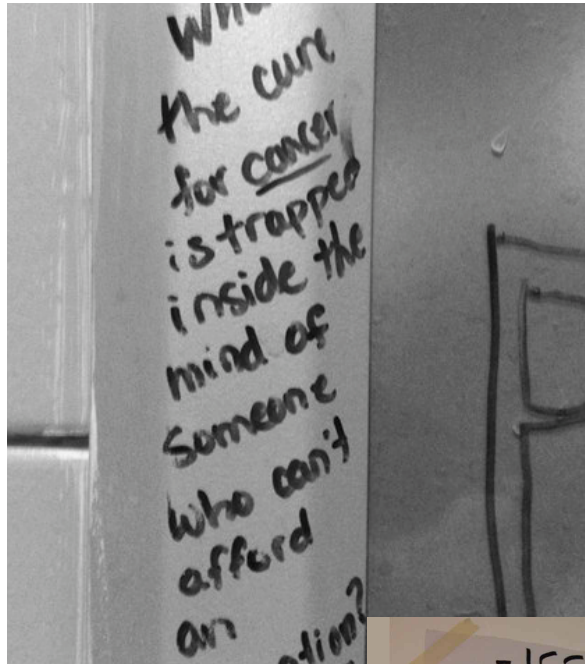 the cure
for cancer
is trapped
inside the
mind of
someone
who can't
afford
an